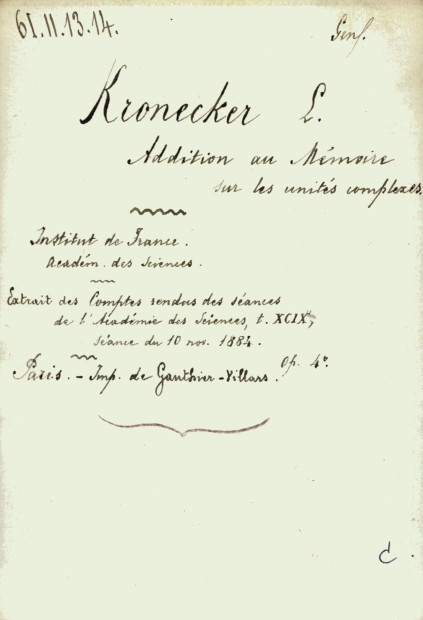 61.II.13.14.
Genf.
Kronecker L.
Addition au Mémoire
sur les unités complexes.
Institut de France.
Académ. des Sciences.
Extrait des Comptes rendus des séances
de l'Académie des Sciences, t. XCIX,
séance du 10 nov. 1884.
Paris. - Imp. de Gauthier-Villars. Op. 4°.
d.